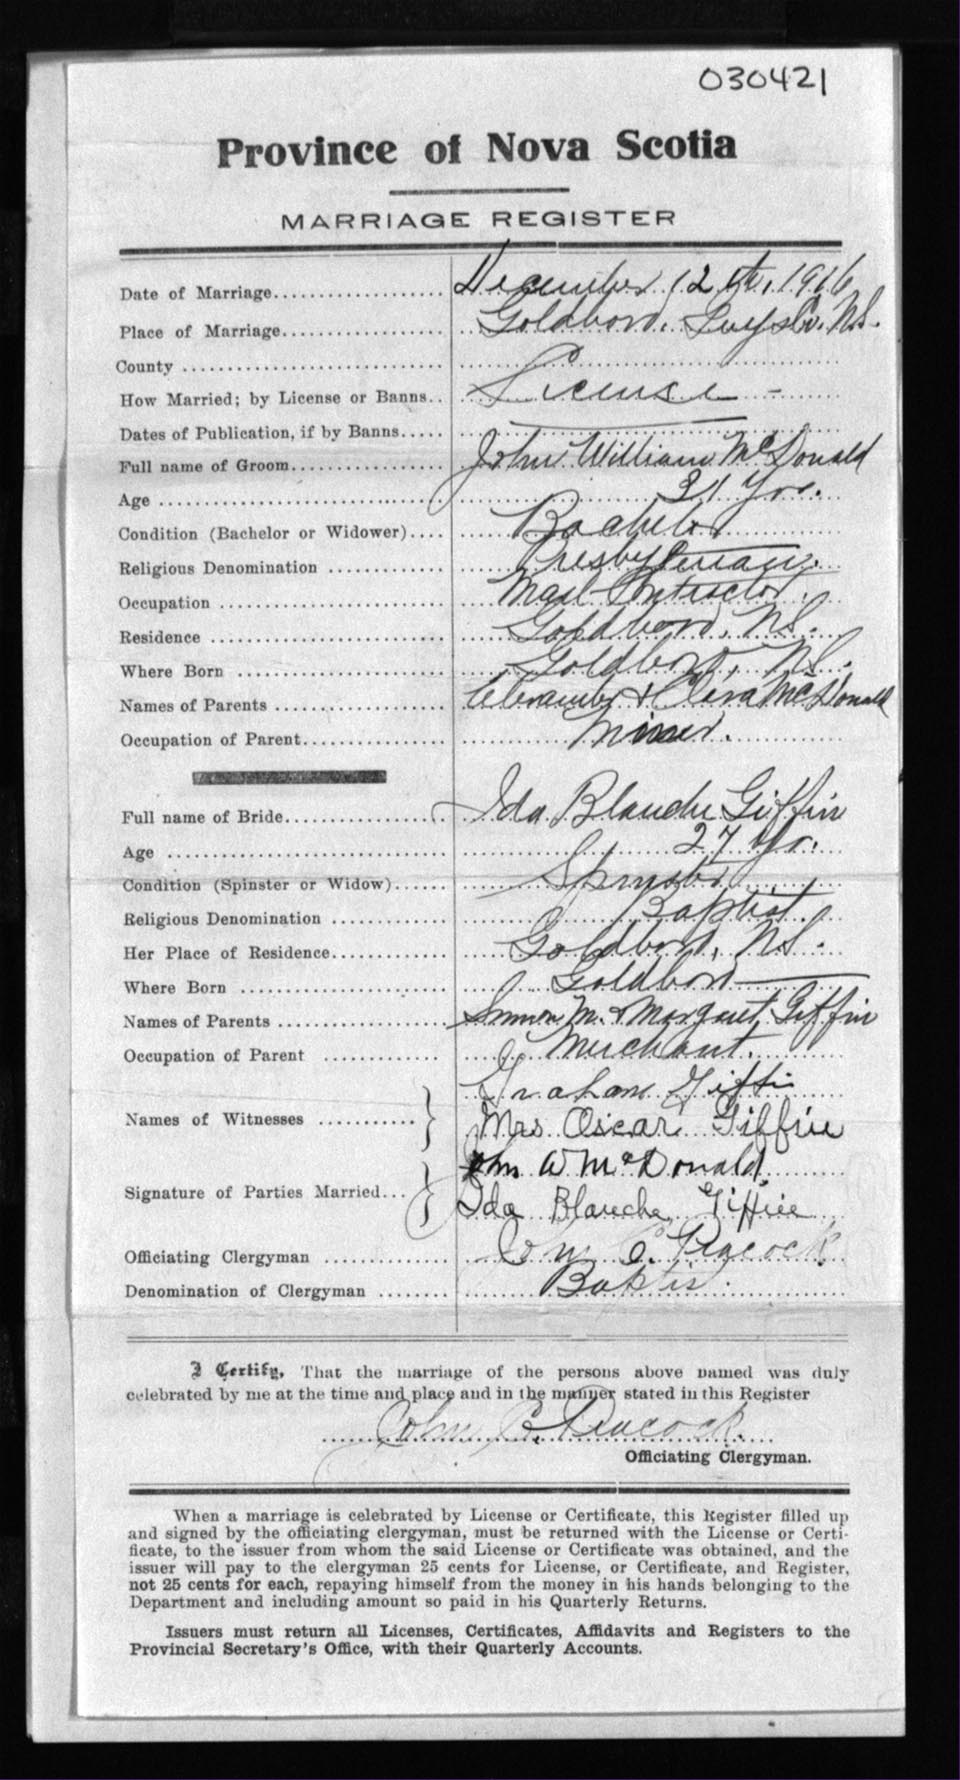 030421
Province of Nova Scotia
MARRIAGE REGISTER
Date of Marriage.................... December 12th, 1916
Place of Marriage.................... Goldboro, Guys Co. N.S.
County ..............................
How Married; by License or Banns.. License -
Dates of Publication, if by Banns..... 
Full name of Groom.................. John William McDonald
Age .............................. 31 Yrs.
Condition (Bachelor or Widower).... Bachelor
Religious Denomination ............ Presbyterian.
Occupation ........................ Mail Contractor.
Residence ........................ Goldboro, N.S.
Where Born ...................... Goldboro, N.S.
Names of Parents .................. & Clara McDonald
Occupation of Parent................ Miner.
Full name of Bride.................. Ida Blanche Giffin
Age .............................. 27 Yr.
Condition (Spinster or Widow)...... Spinster
Religious Denomination ............ Baptist.
Her Place of Residence.............. Goldboro, N.S.
Where Born ...................... Goldboro
Names of Parents .................. Simon M. & Margaret Giffin
Occupation of Parent .............. Merchant.
Graham Giffin
Names of Witnesses ............ } Mrs Oscar Giffin
John W McDonald
Signature of Parties Married... } Ida Blanche Giffin
Officiating Clergyman .............. John C. Peacock
Denomination of Clergyman ........ Baptis
I Certify, That the marriage of the persons above named was duly
celebrated by me at the time and place and in the manner stated in this Register
John C. Peacock.
Officiating Clergyman.
When a marriage is celebrated by License or Certificate, this Register filled up
and signed by the officiating clergyman, must be returned with the License or Certi-
ficate, to the issuer from whom the said License or Certificate was obtained, and the
issuer will pay to the clergyman 25 cents for License, or Certificate, and Register,
not 25 cents for each, repaying himself from the money in his hands belonging to the
Department and including amount so paid in his Quarterly Returns.
Issuers must return all Licenses, Certificates, Affidavits and Registers to the
Provincial Secretary's Office, with their Quarterly Accounts.